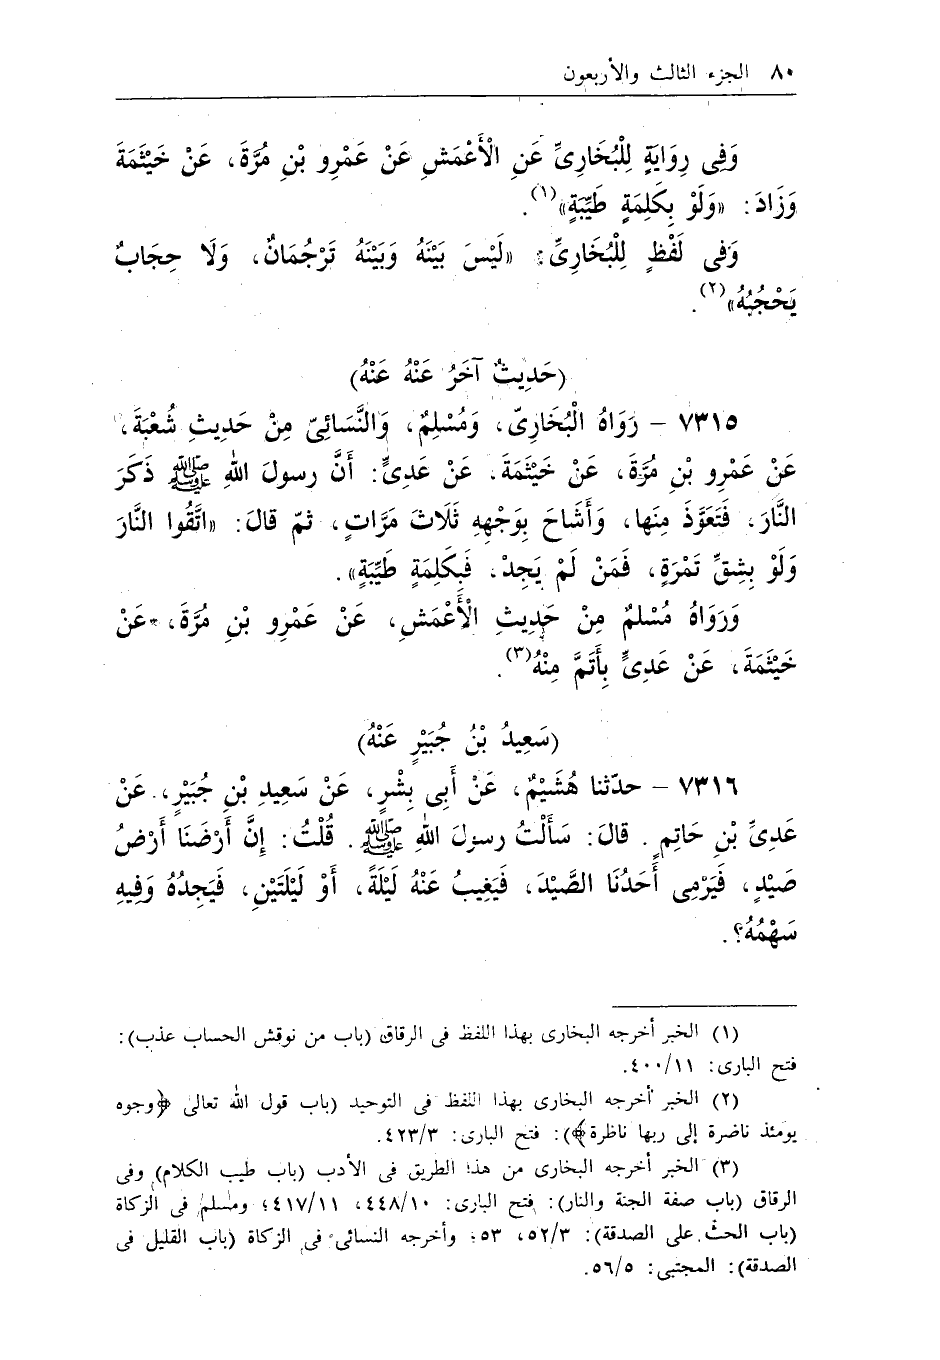 ٨٠ الجزء الثالث والأربعون
وَفِى رِوَايَةٍ لِلْبُخَارِىِّ عَنِ الْأَعْمَشِ عَنْ عَمْرِو بْنِ مُرَّةَ، عَنْ خَيْثَمَةَ
وَزَادَ: «وَلَوْ بِكَلِمَةٍ طَيِّبَةٍ»(١).
وَفِى لَفْظٍ لِلْبُخَارِىِّ: «لَيْسَ بَيْنَهُ وَبَيْنَهُ تَرْجُمَانٌ، وَلَا حِجَابٌ
يَحْجُبُهُ»(٢).
(حَدِيثٌ آخَرُ عَنْهُ عَنْهُ)
٧٣١٥ - رَوَاهُ الْبُخَارِىّ، وَمُسْلِمٌ، وَالنَّسَائِىّ مِنْ حَدِيثِ شُعْبَةَ،
عَنْ عَمْرِو بْنِ مُرَّةَ، عَنْ خَيْثَمَةَ، عَنْ عَدِىٍّ: أَنَّ رسولَ اللهِ ﷺ ذَكَرَ
النَّارَ، فَتَعَوَّذَ مِنَها، وَأَشَاحَ بِوَجْهِهِ ثَلَاثَ مَرَّاتٍ، ثمّ قالَ: «اتَّقُوا النَّارَ
وَلَوْ بِشِقِّ تَمْرَةٍ، فَمَنْ لَمْ يَجِدْ، فَبِكَلِمَةٍ طَيِّبَةٍ».
وَرَوَاهُ مُسْلمٌ مِنْ حَدِيثِ الْأَعْمَشِ، عَنْ عَمْرِو بْنِ مُرَّةَ، عَنْ
خَيْثَمَةَ، عَنْ عَدِىٍّ بِأَتَمَّ مِنْهُ(٣).
(سَعِيدُ بْنُ جُبَيْرٍ عَنْهُ)
٧٣١٦ - حدّثنا هُشَيْمٌ، عَنْ أَبِى بِشْرٍ، عَنْ سَعِيدِ بْنِ جُبَيْرٍ، عَنْ
عَدِىِّ بْنِ حَاتِمٍ. قالَ: سَأَلْتُ رسولَ اللهِ ﷺ. قُلْتُ: إِنَّ أَرْضَنَا أَرْضُ
صَيْدٍ، فَيَرْمِى أَحَدُنَا الصَّيْدَ، فَيَغِيبُ عَنْهُ لَيْلَةً، أَوْ لَيْلَتَيْنِ، فَيَجِدُهُ وَفِيهِ
سَهْمُهُ؟.
(١) الخبر أخرجه البخارى بهذا اللفظ فى الرقاق (باب من نوقش الحساب عذب):
فتح البارى: ٤٠٠/١١.
(٢) الخبر أخرجه البخارى بهذا اللفظ فى التوحيد (باب قول الله تعالى ﴿وجوه
يومئذ ناضرة إلى ربها ناظرة﴾): فتح البارى: ٤٢٣/٣.
(٣) الخبر أخرجه البخارى من هذا الطريق فى الأدب (باب طيب الكلام) وفى
الرقاق (باب صفة الجنة والنار): فتح البارى: ٤٤٨/١٠، ٤١٧/١١؛ ومسلم فى الزكاة
(باب الحث على الصدقة): ٥٢/٣، ٥٣؛ وأخرجه النسائى فى الزكاة (باب القليل فى
الصدقة): المجتبى: ٥٦/٥.